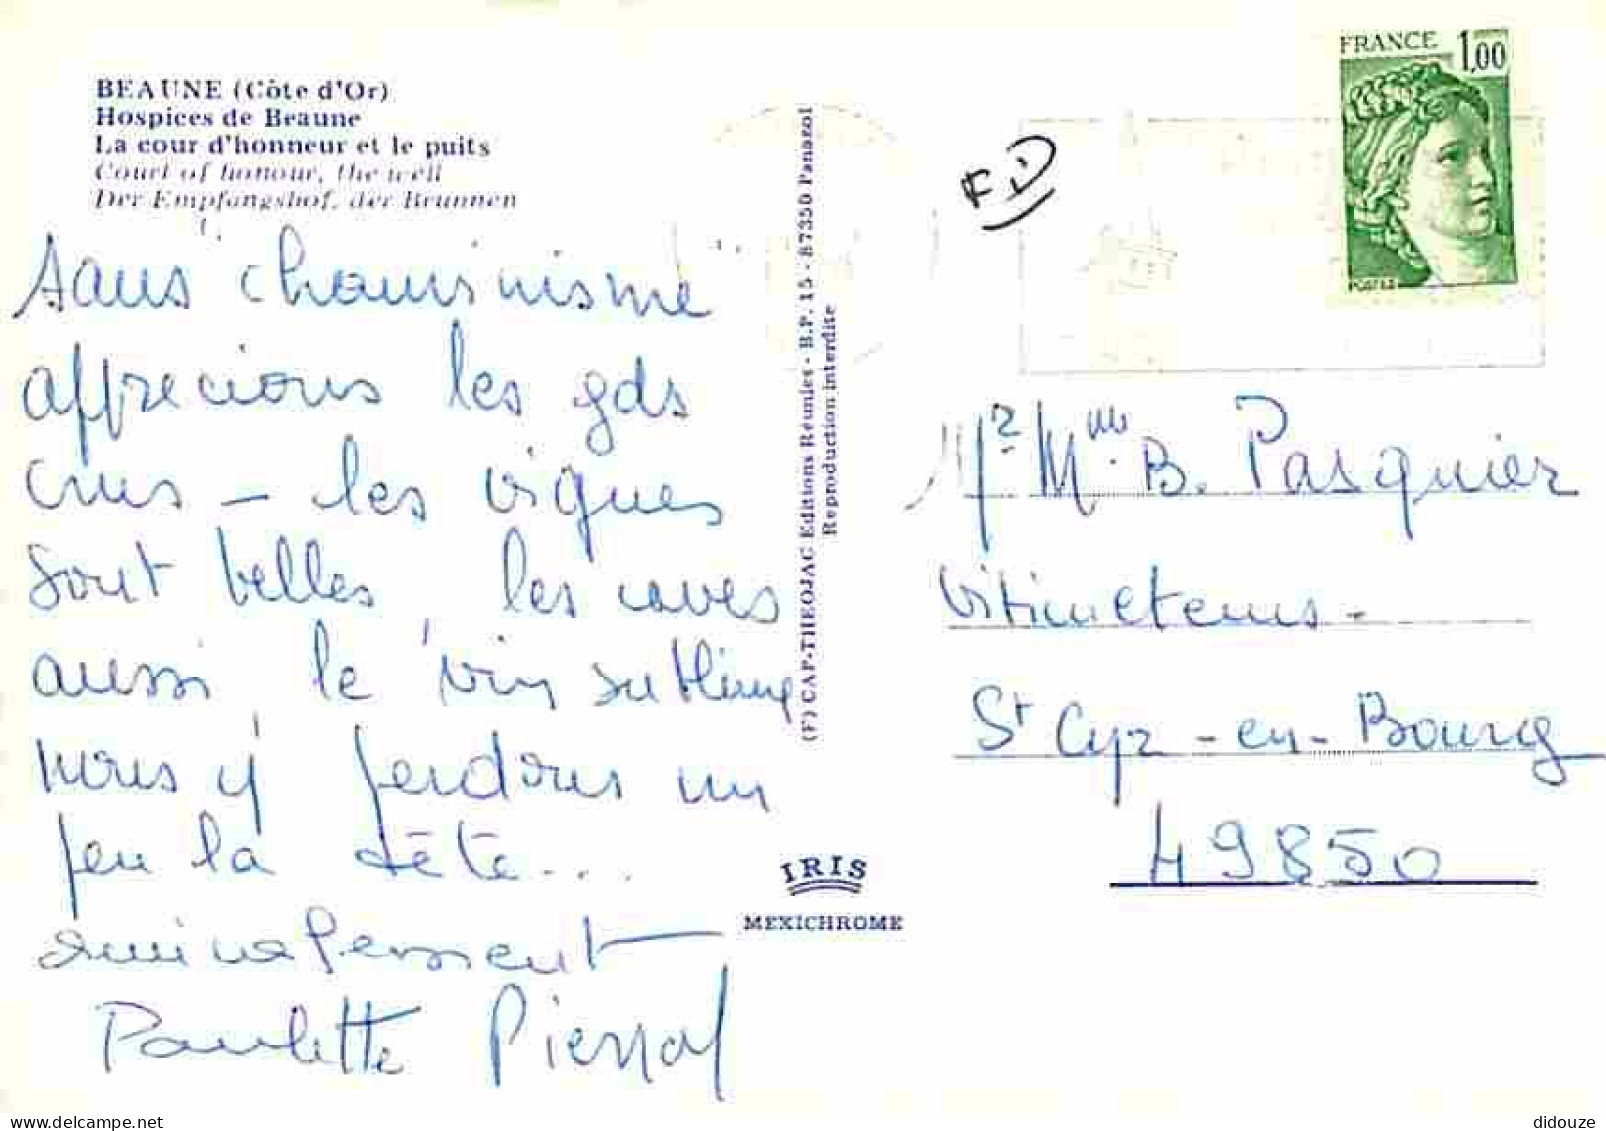 BEAUNE (Côte d'Or)
Hospices de Beaune
La cour d'honneur et le puits
Court of honour, the well
Der Empfangshof, der Brunnen
sans chauvinisme
apprecions les gds
crus - les vignes
sont belles, les caves
aussi, le vin sublime
nous y perdons un
peu la tête...
amicalement
Paulette
(F) CAP-THEOJAC Editions Réunies - B.P. 15 - 87350 Panazol
Reproduction interdite
IRIS
MEXICHROME
FRANCE 1,00
POSTES
Mr Mme B. Pasquier
Viticulteurs -
St Cyr - en - Bourg
49850
didouze